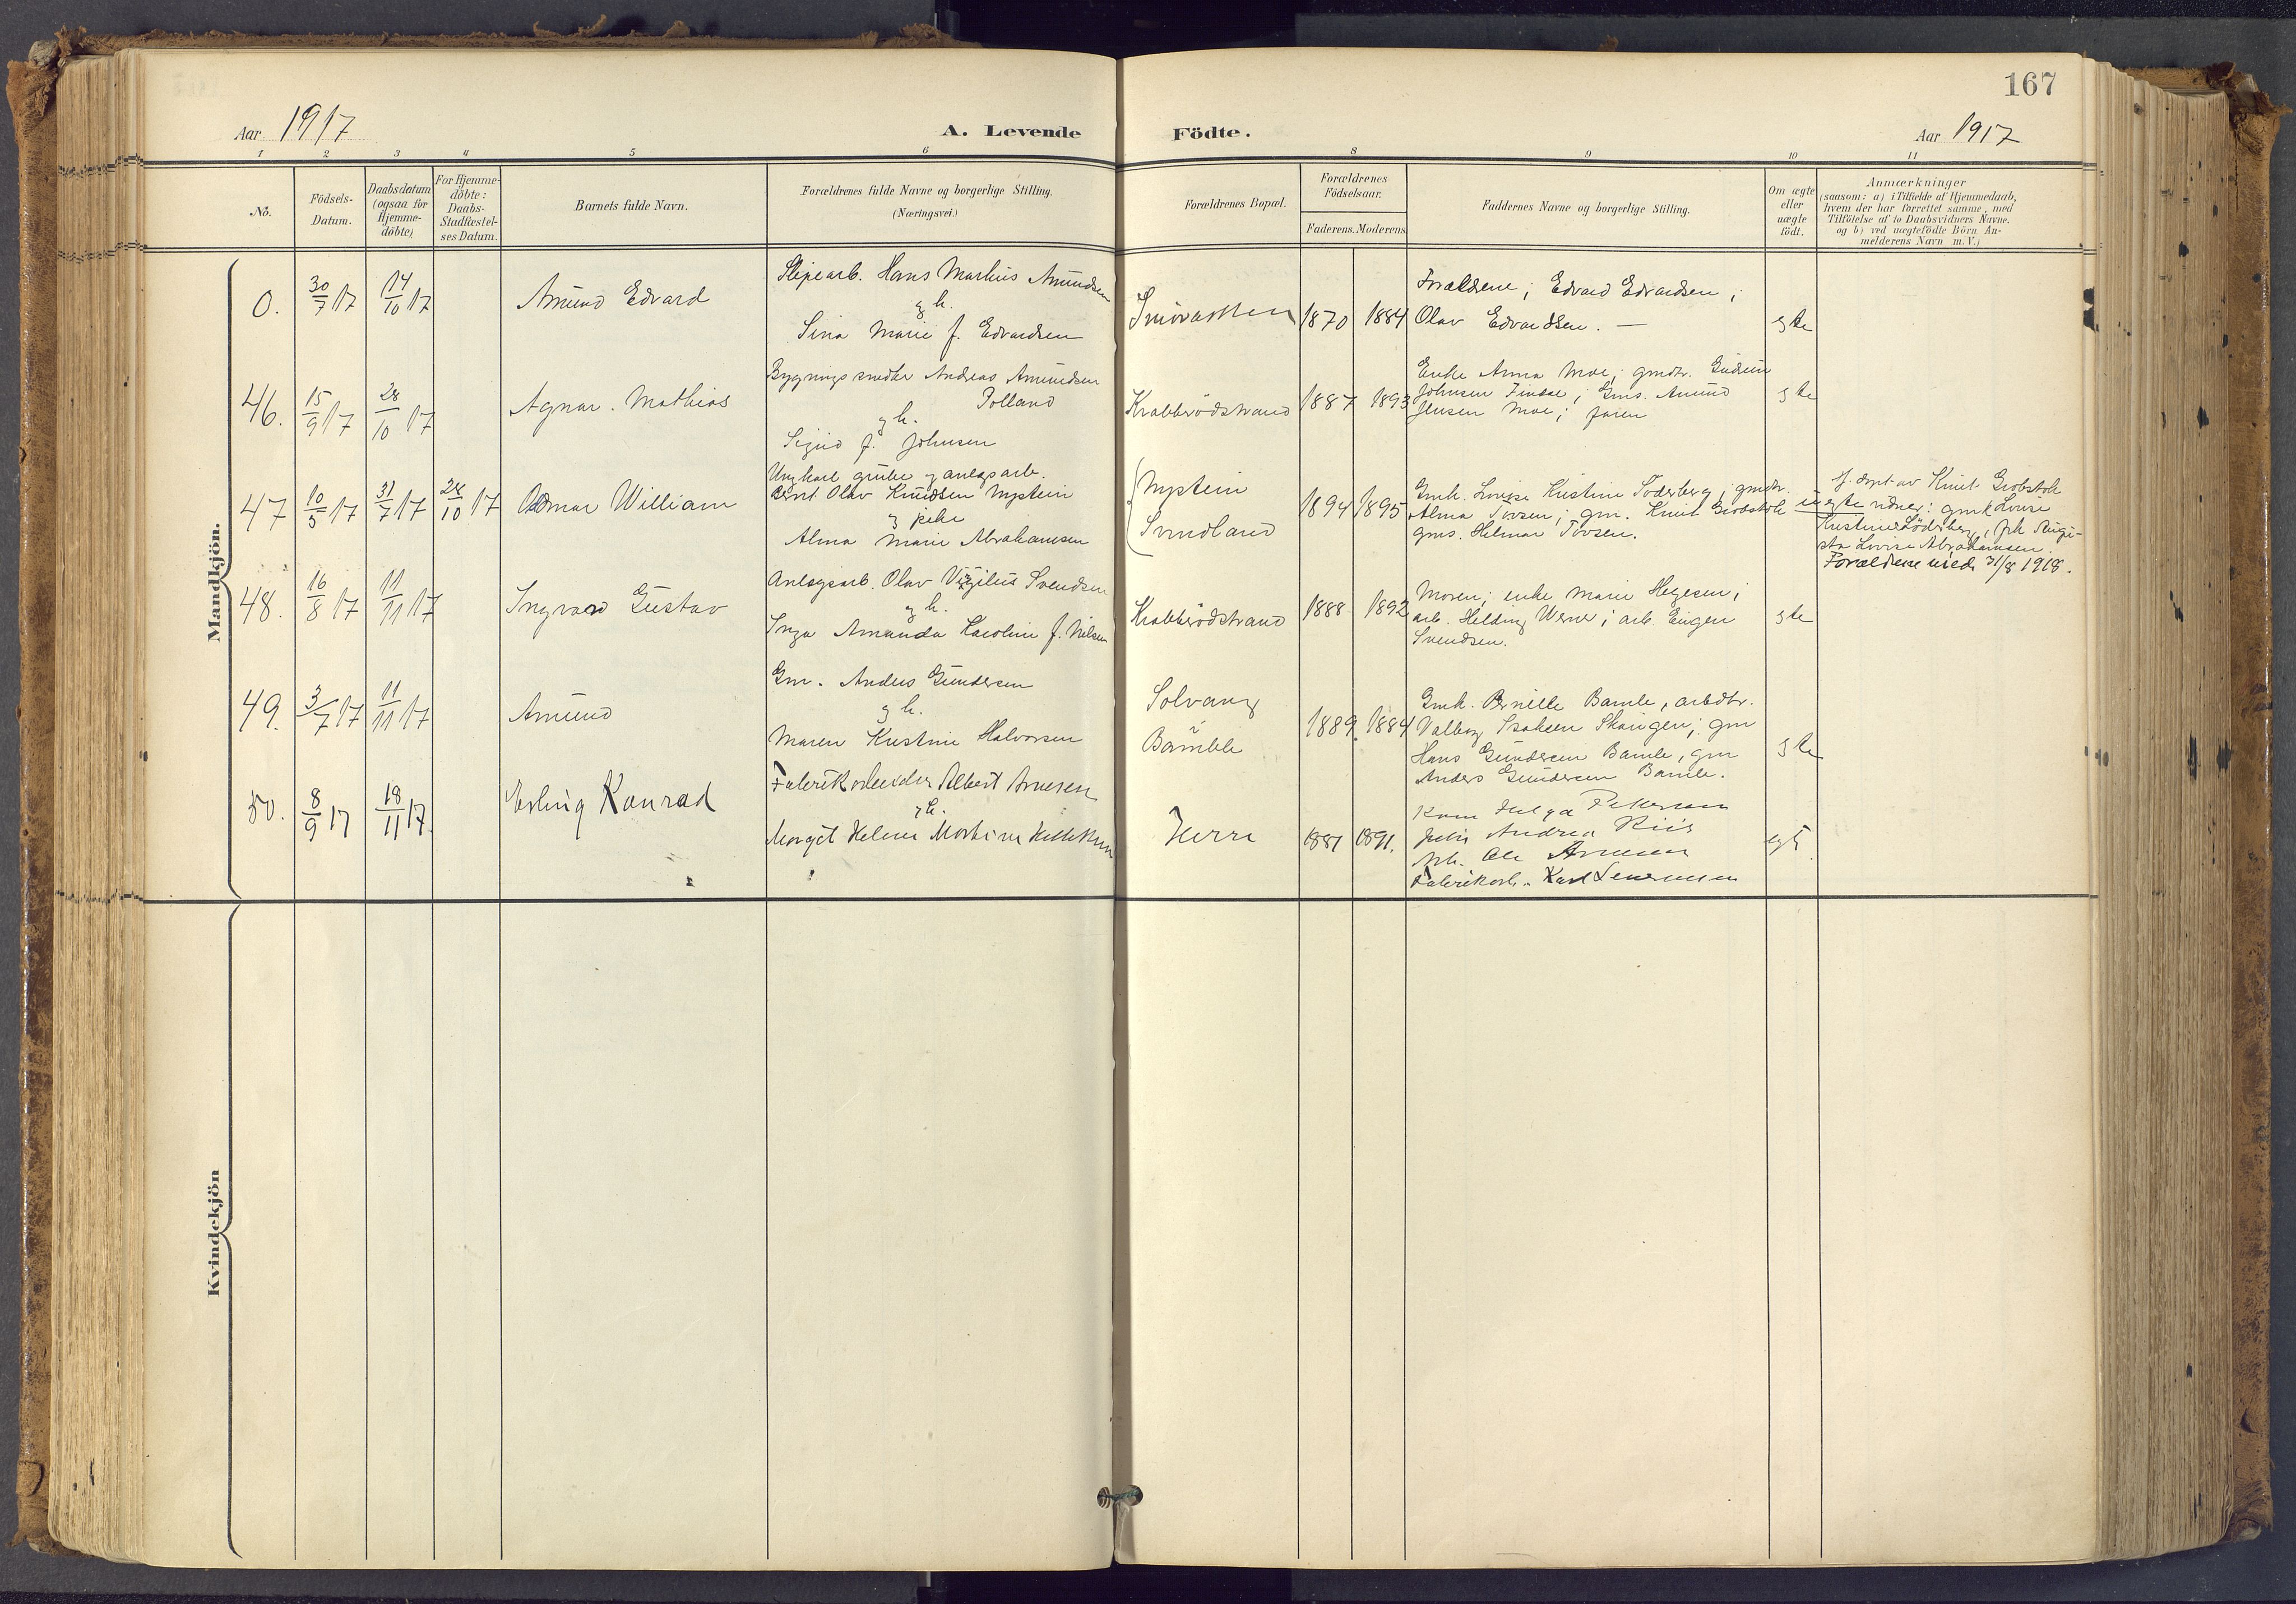 167
Aar 1917
A. Levende Födte.
Aar 1917
1 2 3 4 5 6 8 9 10 11
No.
Födsels-
Datum.
Daabsdatum
(ogsaa for
Hjemme-
döbte).
For Hjemme-
döbte:
Daabs-
Stadfæstel-
ses Datum.
Barnets fulde Navn.
Forældrenes fulde Navne og borgerlige Stilling.
(Næringsvei.)
Forældrenes Bopæl.
Forældrenes
Födselsaar.
Faderens. Moderens.
Faddernes Navne og borgerlige Stilling.
Om ægte
eller
uægte
födt.
Anmærkninger
(saasom: a) i Tilfælde af Hjemmedaab,
hvem der har forrettet samme, med
Tilföielse af to Daabsvidners Navne.
og b) ved uægtefödte Börn An-
melderens Navn m. V.)
Mandkjön.
0.
30/7 17
14/10 17
Amund Edvard
Slipearb. Hans Markus Amundsen
og h.
Sina Marie f. Edvardsen
1870 1884
Forældrene; Edvard Edvardsen;
Olav Edvardsen. —
egte
46.
15/9 17
28/10 17
Agnar. Mathias
Bygningssnedker Andreas Amundsen
Tolland
og h.
Sigrid f. Johnsen
Krabberödstrand
1887 1893
Enke Anna Moe; gmdtr. Gudrun
Johnsen Findse; Gms. Amund
Jensen Moe; faren
egte
47
10/5 17
31/7 17
28/10 17
Odmar William
Ungkarl grube og anlegsarb.
Bernt Olav Knudsen Nystein
og pike
Alma Marie Abrahamsen
Nystein
Svindland
1894 1895
Gmk. Lovise Kristine Söderberg; gmdtr.
Alma Tovsen; gm. Knut Grobstok
gms. Helmar Tovsen.
uegte
hj. döpt av Knut Grobstok
vidner: gmk Lovise
Kristine Söderberg, pk Augu-
sta Lovise Abrahamsen.
Forældrene viede 31/8 1918.
48.
16/8 17
11/11 17
Ingvard Gustav
Anlegsarb. Olav Virgilius Svendsen
og h.
Inga Amanda Karoline f. Nilsen
Krabberödstrand
1888 1892
Moren; enke Marie Hegesen;
arb. Helding Werner; arb. Eugen
Svendsen.
egte
49.
3/7 17
11/11 17
Amund
Gm. Anders Gundersen
og h.
Maren Kristine Halvorsen
Solvang
i
Bamble
1889. 1884
Gmk. Pernille Bamle, arbdtr.
Valborg Isaksen Skaugen; gm
Hans Gundersen Bamle, gm
Anders Gundersen Bamle.
egte
50.
8/9 17
18/11 17.
Erling Konrad
Fabrikarbeider Albert Arnesen
og h.
Margit Helene Mathine
Herre
1887 1891.
Kone Helga Pettersen
Pike Andrea Riis
Arb. Ole Arnesen
Fabrikarb. Karl
egte
Kvindekjön